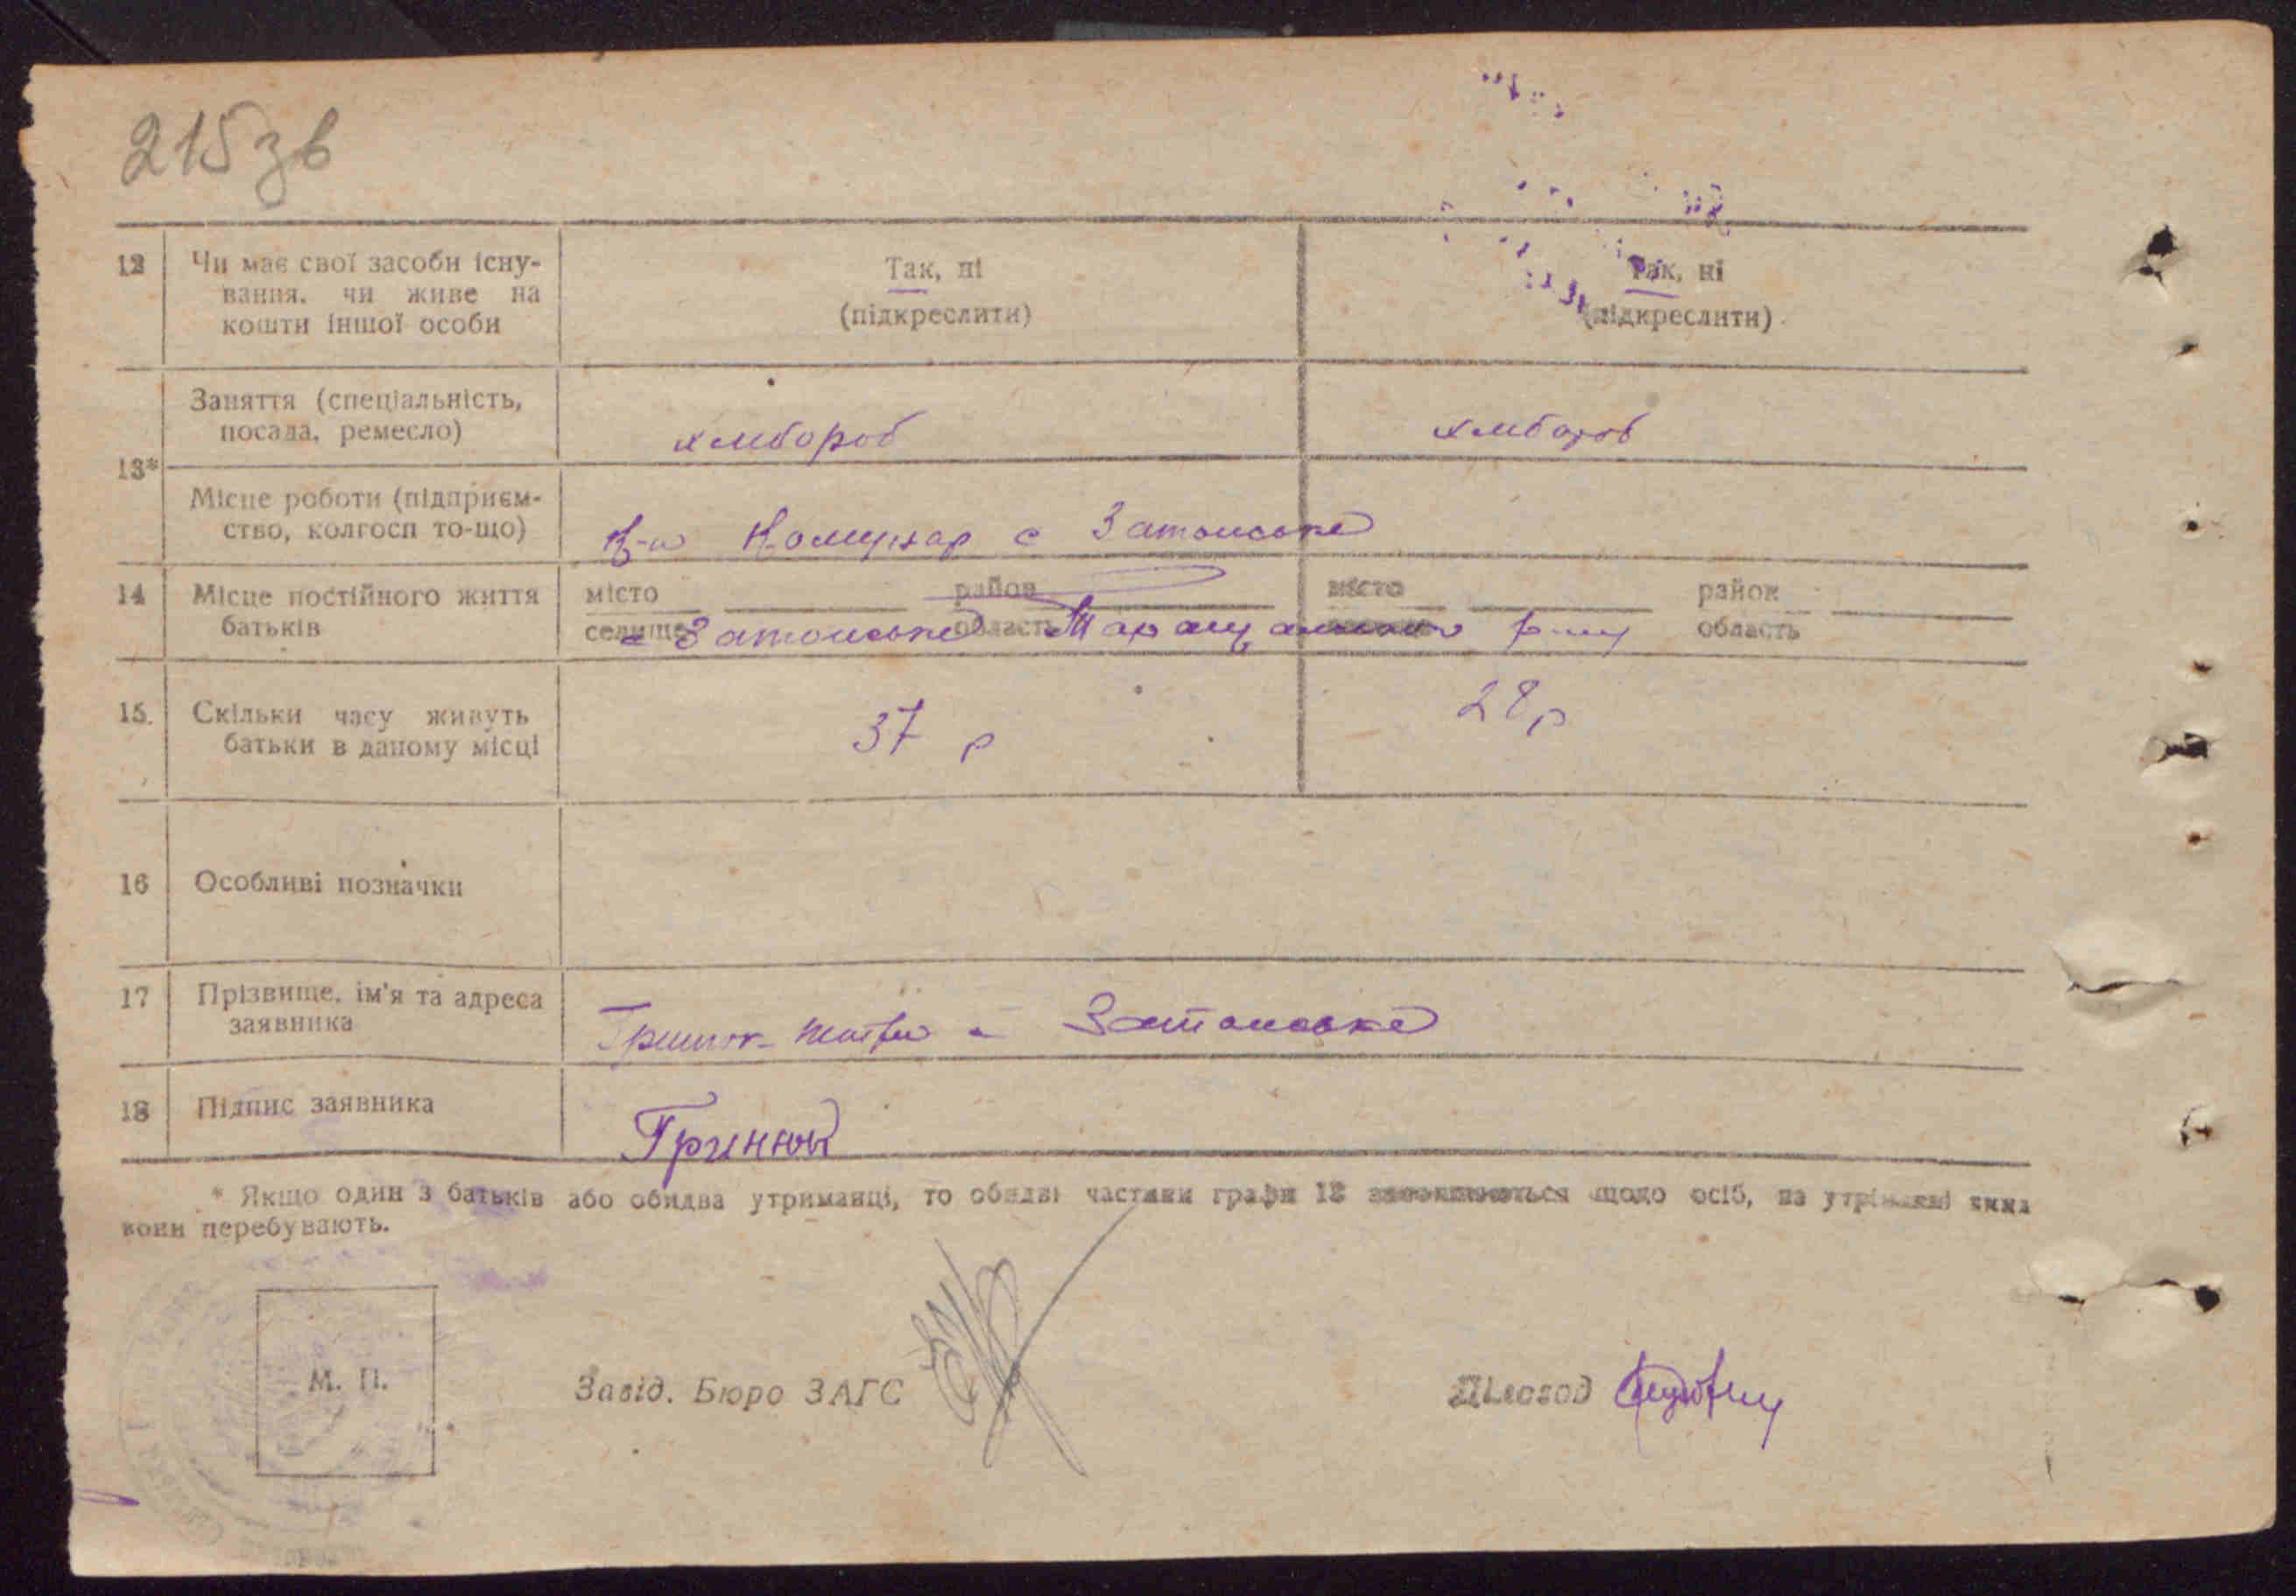 215зв
12 Чи має свої засоби існу- Так, ні Так, ні
вання, чи живе на (підкреслити) (підкреслити)
кошти іншої особи
Заняття (спеціальність, хлібороб хлібороб
посада, ремесло)
13*
Місце роботи (підприєм-
ство, колгосп то-що) К-п Комунар с Затонське
14 Місце постійного життя місто район місто район
батьків селище с Затонське область Таращанського р-ну область
15. Скільки часу живуть 37 р 28 р
батьки в даному місці
16 Особливі позначки
17 Прізвище, ім'я та адреса
заявника с Затонське
18 Підпис заявника
* Якщо один з батьків або обидва утриманці, то обидві частини графи 13 заповнюються щодо осіб, на утриманні яких
вони перебувають.
М. П. Завід. Бюро ЗАГС Діловод